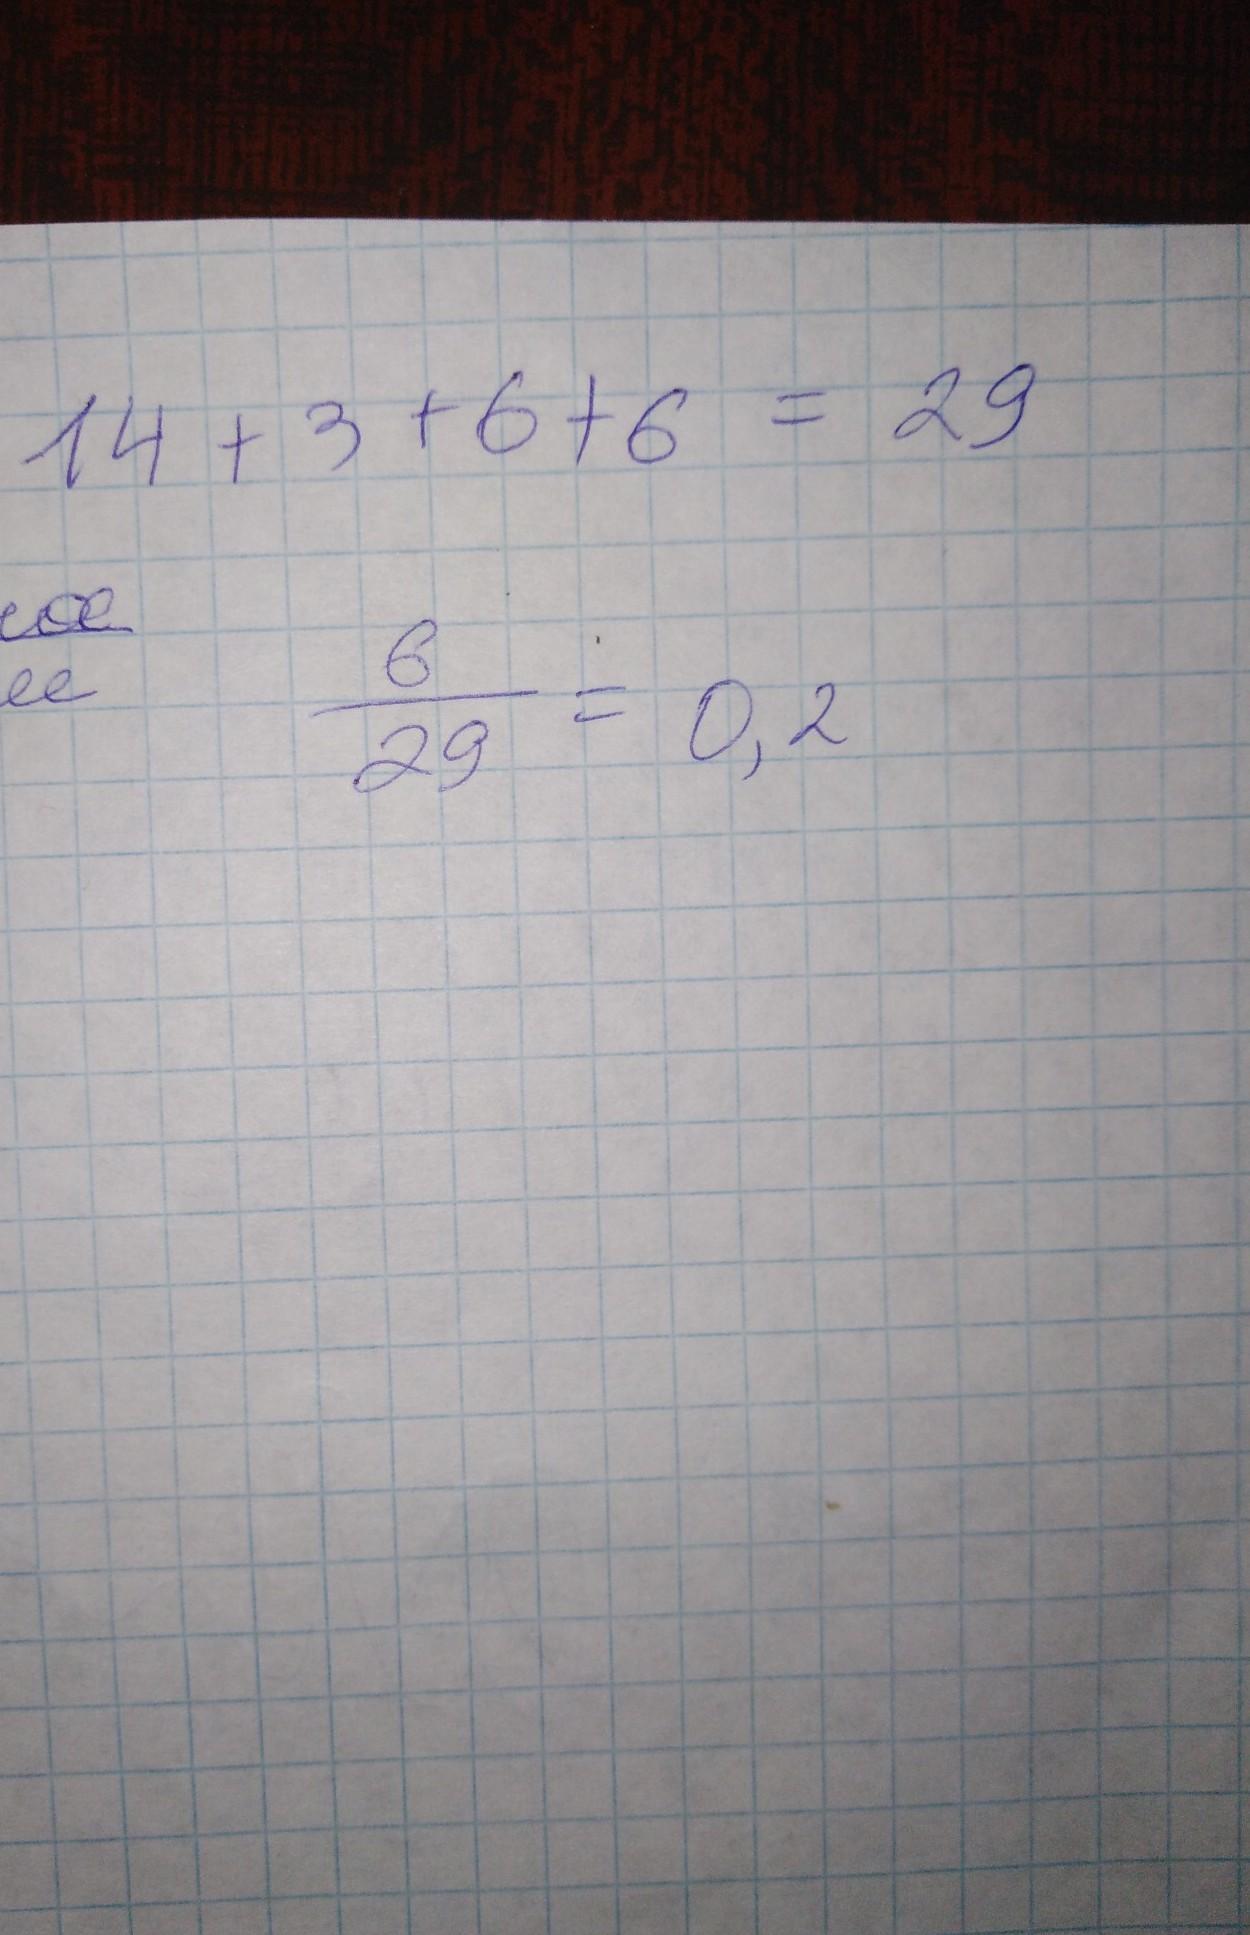 14 + 3 + 6 + 6 = 29
6
29
= 0,2